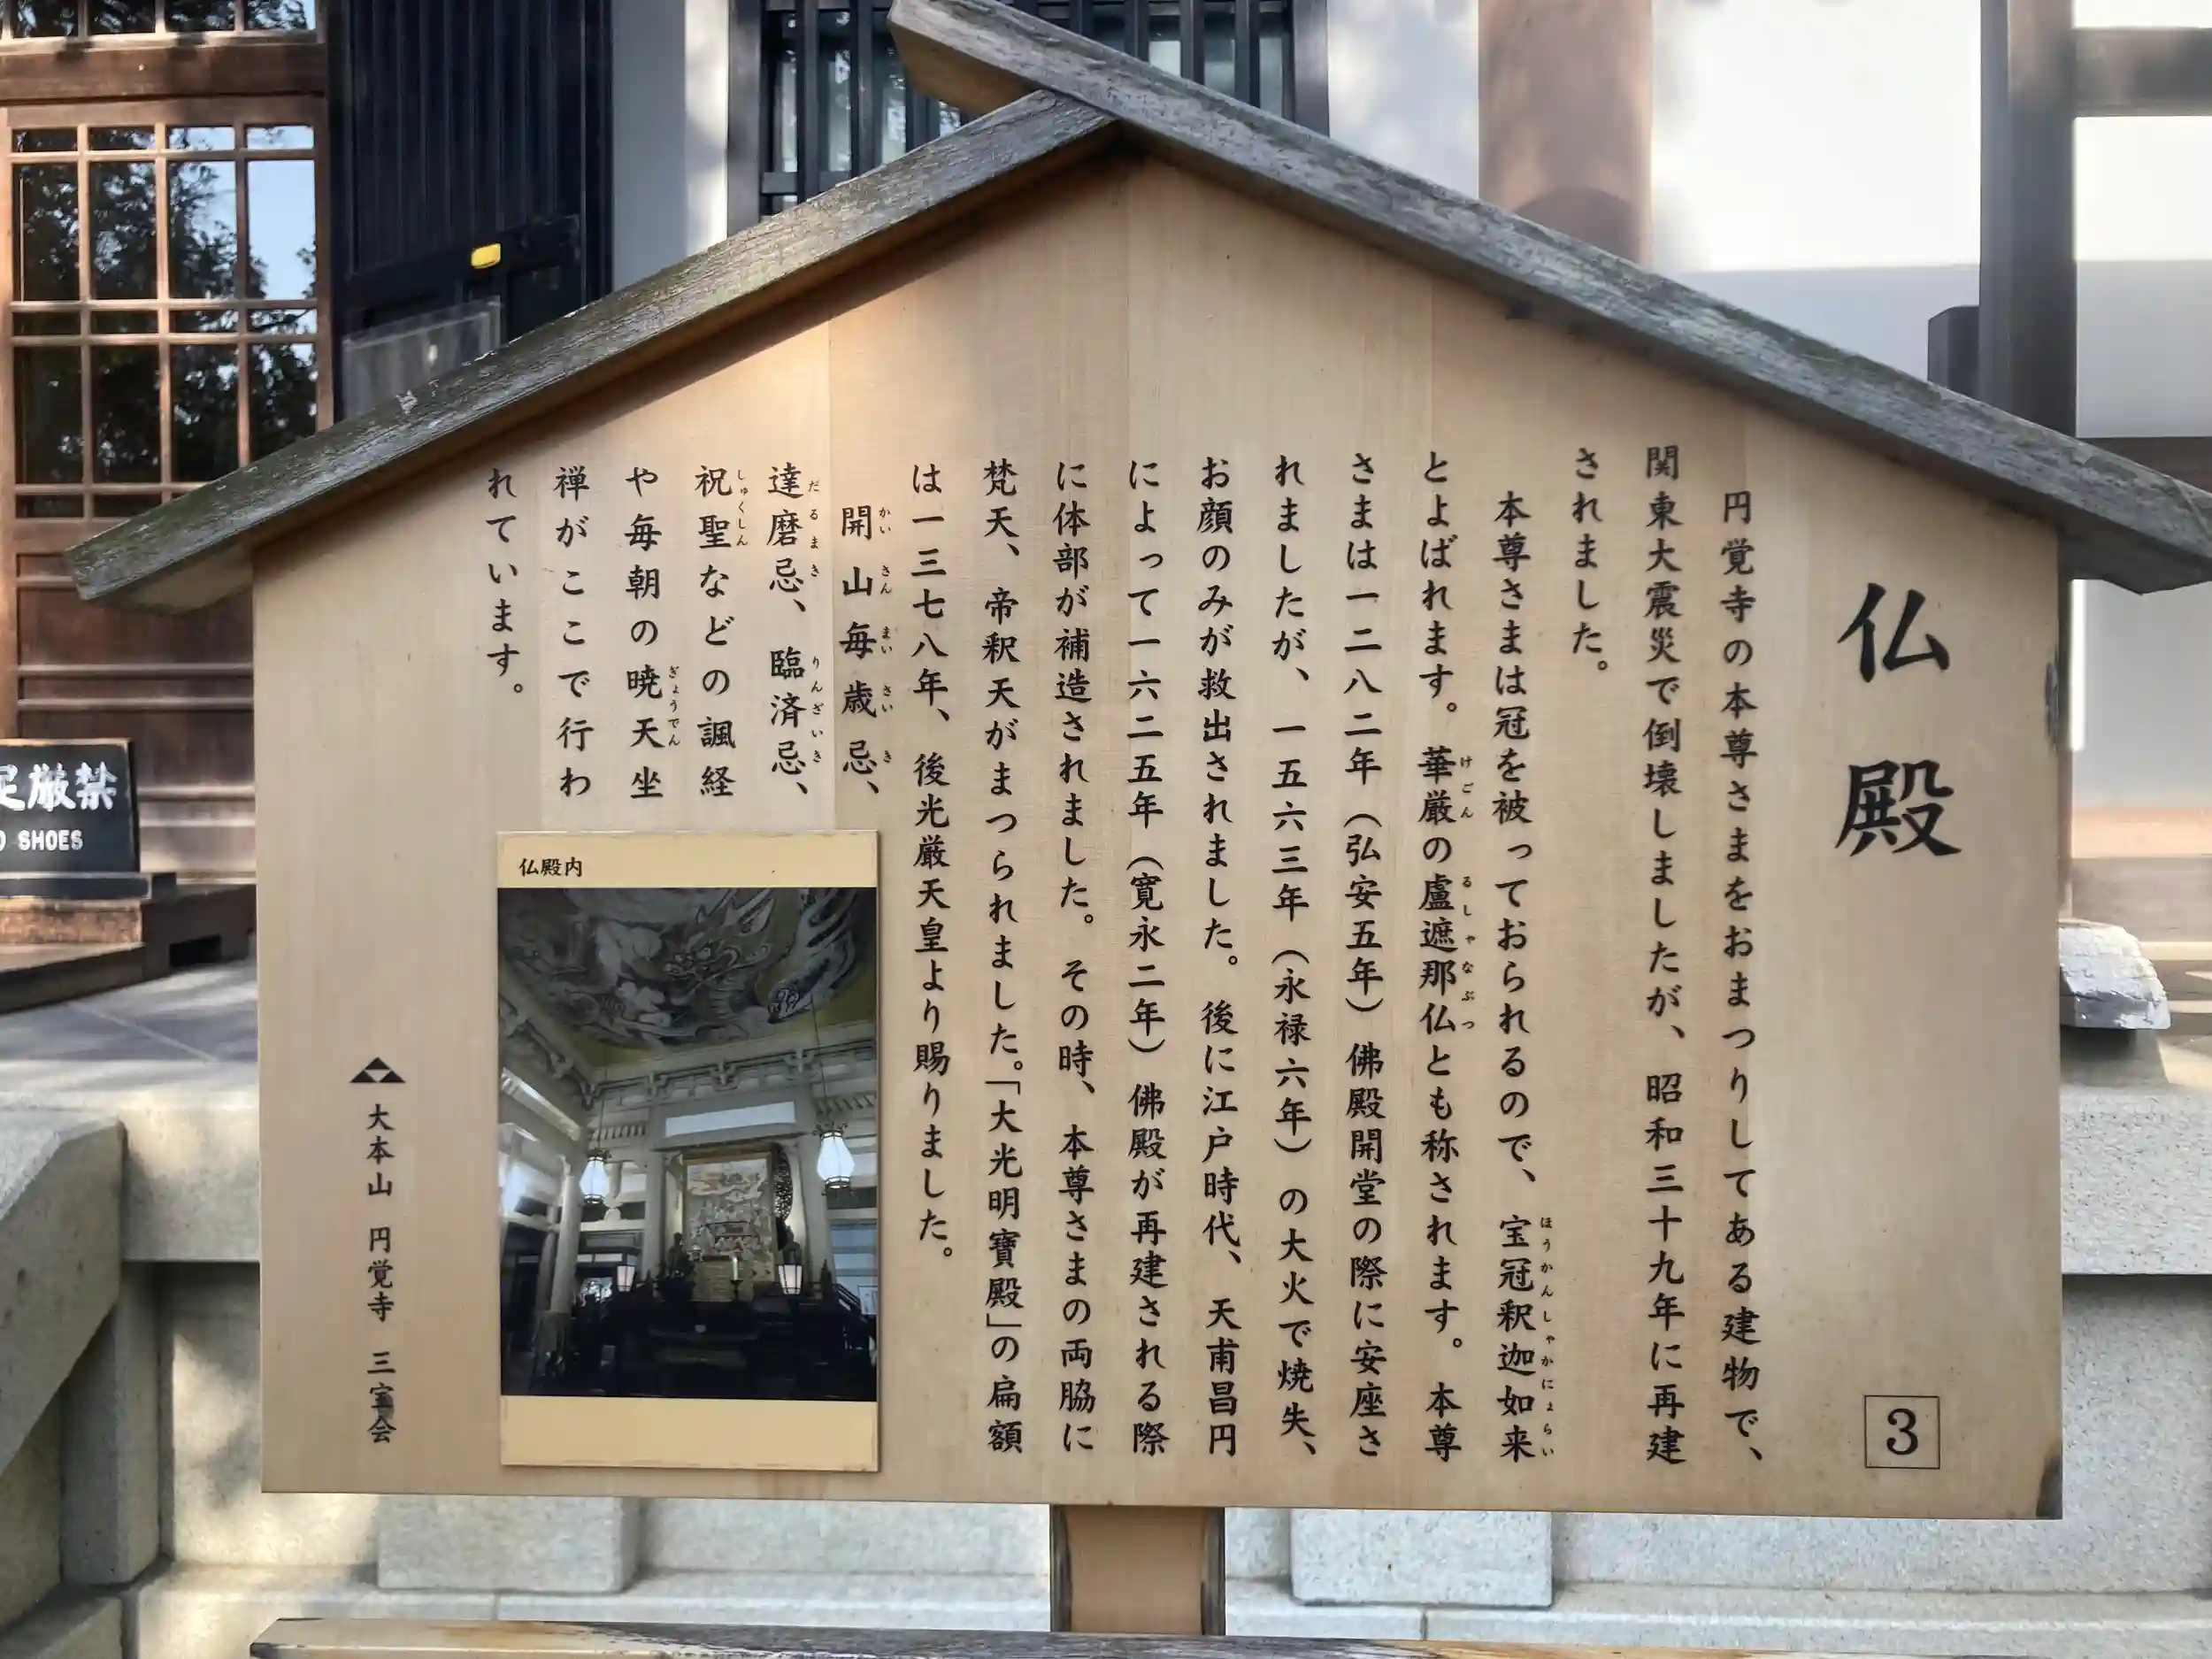 仏殿
3
円覚寺の本尊さまをおまつりしてある建物で、
関東大震災で倒壊しましたが、昭和三十九年に再建
されました。
本尊さまは冠を被っておられるので、宝冠釈迦如来
ほうかんしゃかにょらい
とよばれます。華厳の盧遮那仏とも称されます。本尊
けごん
るしゃなぶつ
さまは一二八二年（弘安五年）佛殿開堂の際に安座さ
れましたが、一五六三年（永禄六年）の大火で焼失、
お顔のみが救出されました。後に江戸時代、天甫昌円
によって一六二五年（寛永二年）佛殿が再建される際
に体部が補造されました。その時、本尊さまの両脇に
梵天、帝釈天がまつられました。「大光明寶殿」の扁額
は一三七八年、後光厳天皇より賜りました。
開山毎歳忌、
かいさんまいさいき
達磨忌、臨済忌、
だるまき
りんざいき
祝聖などの諷経
しゅくしん
や毎朝の暁天坐
ぎょうてん
禅がここで行わ
れています。
仏殿内
大本山 円覚寺 三宝会
足厳禁
SHOES